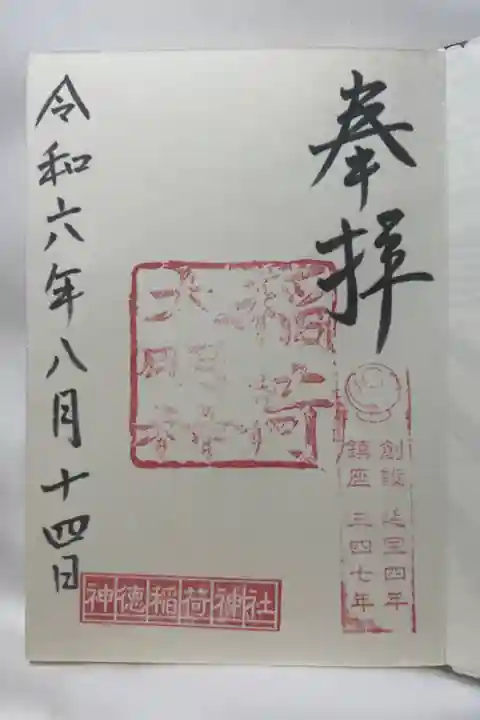 奉拝
創設 延宝四年
鎮座 三四七年
稲荷
神徳稲荷神社
令和六年八月十四日